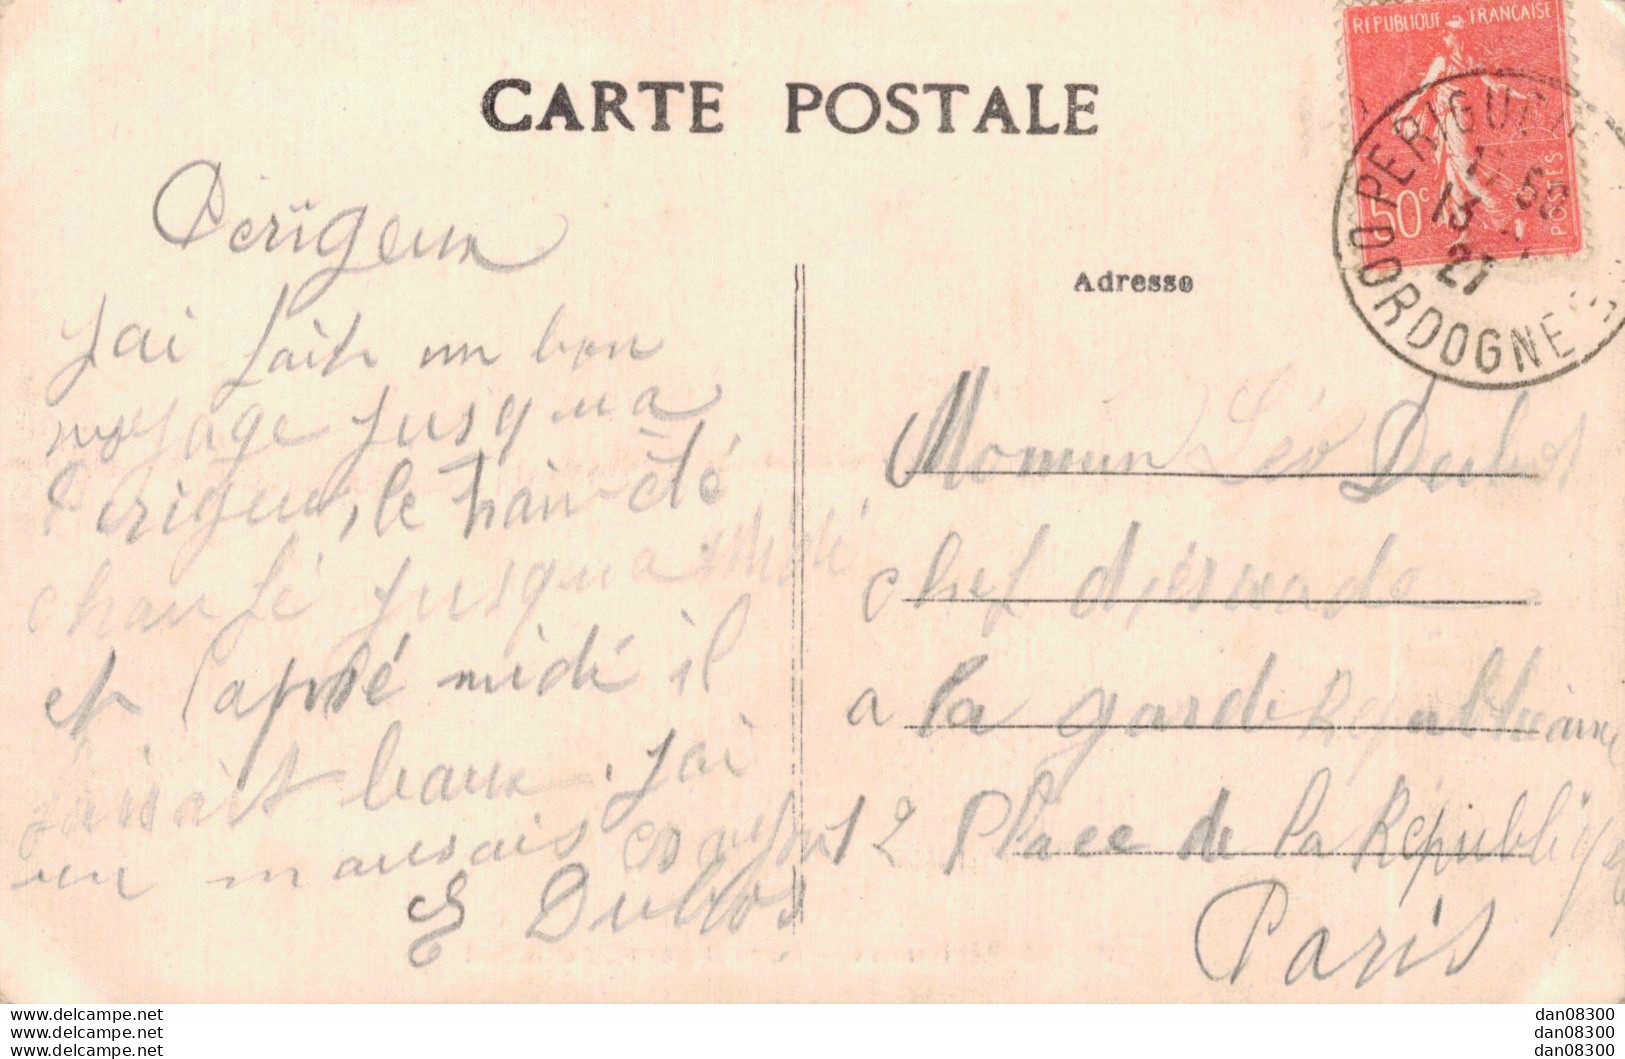 CARTE POSTALE
REPUBLIQUE FRANCAISE
50c
POSTES
PERIGUEUX
13
27
DORDOGNE
Adresse
Périgeux
J'ai fait un bon
voyage jusqu a
Perigeux, le train été
chaufé jusqu a midi
et l'apré midi il
faisait baux. J'ai
un mauvais
E Dubos
Léo Dubos
chef d'escuade
a la garde Republicaine
12 Place de la Republique
Paris
www.delcampe.net
www.delcampe.net
www.delcampe.net
dan08300
dan08300
dan08300